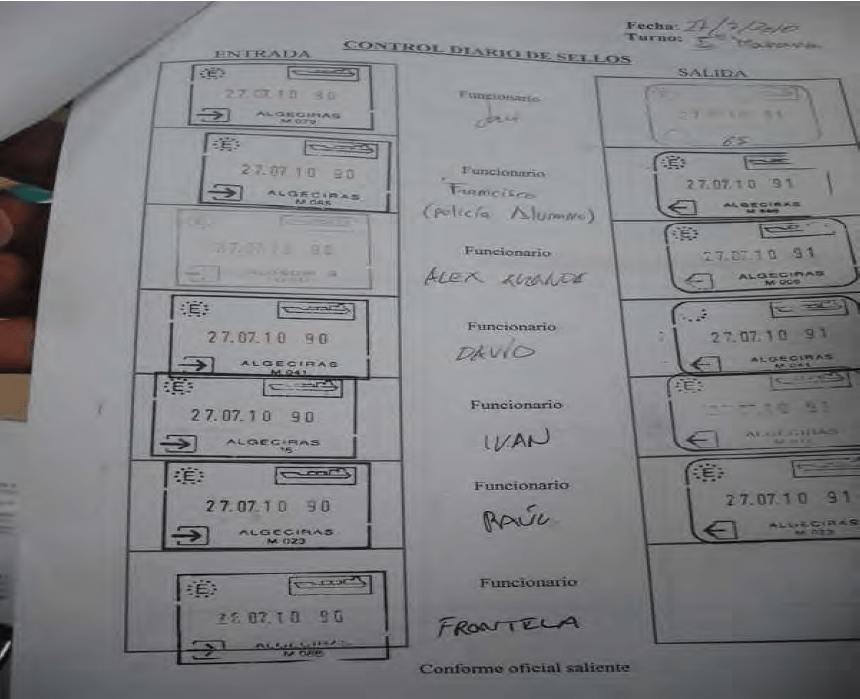 Fecha: 27/7/2010
Turno: Iº Mañana
CONTROL DIARIO DE SELLOS
ENTRADA
SALIDA
E
27.07.10 90
ALGECIRAS
M 079
Funcionario
Javi
27.07.10 91
65
E
27.07.10 90
ALGECIRAS
M 065
Funcionario
Francisco
(policía Alumno)
E
27.07.10 91
ALGECIRAS
E
27.07.10 90
Funcionario
ALEX
E
27.07.10 91
ALGECIRAS
M 006
E
27.07.10 90
ALGECIRAS
M 041
Funcionario
DAVID
27.07.10 91
ALGECIRAS
M 041
E
27.07.10 90
ALGECIRAS
15
Funcionario
IVAN
E
ALGECIRAS
E
27.07.10 90
ALGECIRAS
M 023
Funcionario
RAÚL
E
27.07.10 91
ALGECIRAS
M 023
E
28.07.10 90
ALGECIRAS
Funcionario
FRONTELA
Conforme oficial saliente